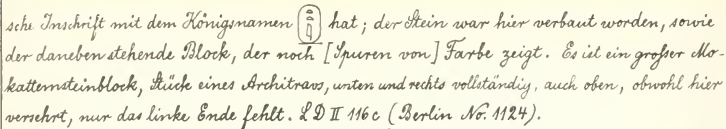 sche Inschrift mit dem Königsnamen hat; der Stein war hier verbaut worden, sowie
der daneben stehende Block, der noch [Spuren von] Farbe zeigt. Es ist ein großer Mo-
kattemsteinblock, Stück eines Architravs, unten und rechts vollständig, auch oben, obwohl hier
versehrt, nur das linke Ende fehlt. LD II 116c (Berlin No. 1124).